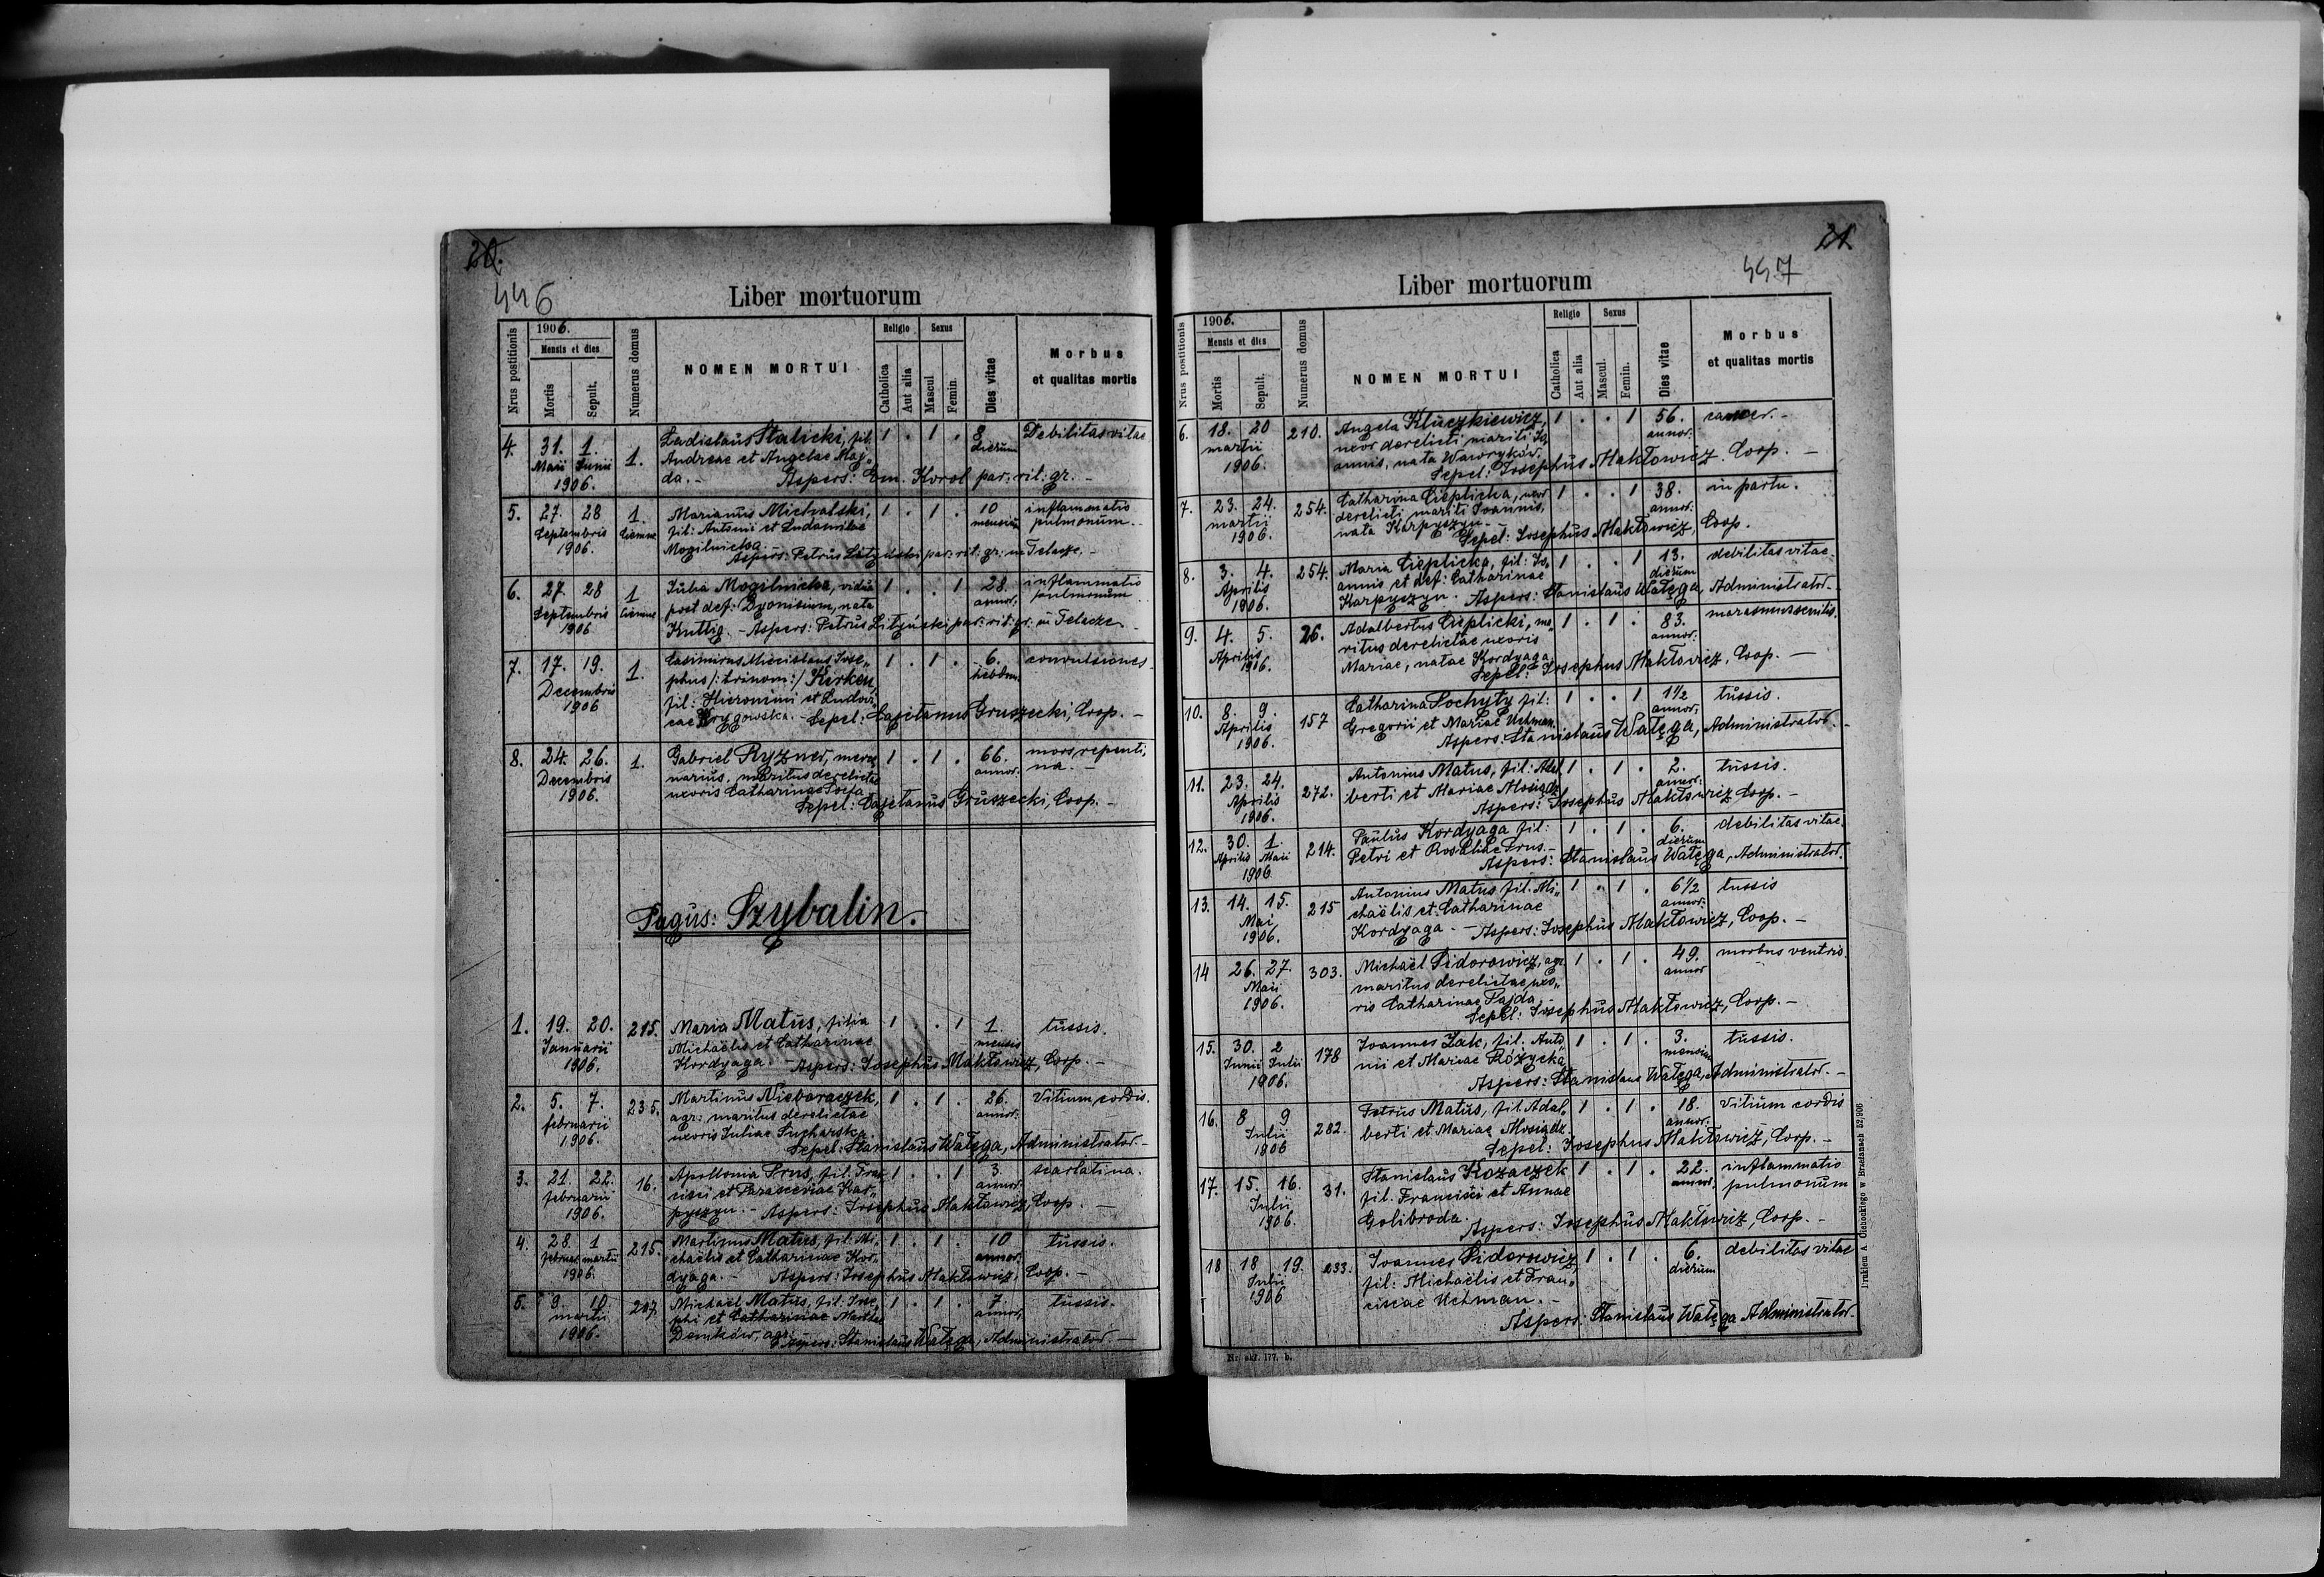 20.
446
Liber mortuorum
Nrus postitionis
1906.
Mensis et dies
Mortis
Sepult.
Numerus domus
NOMEN MORTUI
Religio
Catholica
Aut alia
Sexus
Mascul
Femin.
Dies vitae
Morbus
et qualitas mortis
4. 31. 1. 1. Ladislaus Stalicki, fil. 1 . 1 . 8 Debilitas vitae
Maii Junii Andreae et Angelae Maj„ dierum
1906. da. - Aspers: Em. Korol par: rit: gr. -
5. 27. 28 1. Marianus Michalski, 1 . 1 . 10 inflammatio
Septembris fil: Antonii et Ludomilae mensium pulmonum. -
1906. Mogilnicka Aspers: Petrus Lityński par: rit: gr: in Telacze. -
6. 27. 28 1 Julia Mogilnicka, vidua 1 . . 1 28. inflammatio
Septembris post def: Dyonisium, nata annor: pulmonum
1906 Kuttig. - Aspers: Petrus Lityński par: rit: gr. in Telacze -
7. 17. 19. 1. Casimirus Miecislaus Jose„ 1 . 1 . 6. convulsiones
Decembris phus /: trinom: / Kirken, hebdom.
1906 fil: Hieronimi et Ludovi„
cae Krygowska. - Sepel: Cajetanus Gruszecki, Coop. -
8. 24. 26. 1. Gabriel Ryzner, merce„ 1 . 1 . 66. mors repenti„
Decembris narius, maritus derelictae annor. na. -
1906. uxoris Catharinae
Sepel: Cajetanus Gruszecki, Coop. -
Pagus: Szybalin.
1. 19. 20. 215. Maria Matus, filia 1 . . 1 1. tussis.
Januarii Michaëlis et Catharinae mensis
1906. Kordyaga. - Aspers: Josephus Makłowicz, Coop. -
2. 5. 7. 235. Martinus Nieboraczek, 1 . 1 . 26. Vitium cordis.
februarii agr: maritus derelictae annor.
1906. uxoris Juliae Sucharska
Sepel: Stanislaus Wałęga, Administrator. -
3. 21. 22. 16. Apollonia Prus, fil. Fran„ 1 . . 1 3. scarlatina.
februarii cisci et Parasceviae Kar„ annor.
1906. pyszyn. - Aspers: Josephus Makłowicz, Coop. -
4. 28. 1 215. Martinus Matus, fil. Mi„ 1 . 1 . 10 tussis.
februar. martii chaëlis et Catharinae Kor„ annor.
1906. dyaga. - Aspers: Josephus Makłowicz, Coop. -
5. 9 10 207. Michaël Matus, fil: Jose„ 1 . 1 . 7 tussis.
martii phi et Catharinae Martha annor.
1906. Demków, agr.
Aspers: Stanislaus Wałęga, Administrator. -
21
447
Liber mortuorum
Nrus postitionis
1906.
Mensis et dies
Mortis
Sepult.
Numerus domus
NOMEN MORTUI
Religio
Catholica
Aut alia
Sexus
Mascul.
Femin.
Dies vitae
Morbus
et qualitas mortis
6. 18. 20 210. Angela Kluczkiewicz, 1 . . 1 56. cancer. -
martii uxor derelicti mariti Jo„ annor.
1906. annis, nata Waworyków.
Sepel: Josephus Makłowicz. Coop. -
7. 23. 24. 254. Catharina Cieplicka, uxor 1 . . 1 38. in partu.
martii derelicti mariti Joannis, annor.
1906. nata Karpyszyn. -
Sepel: Josephus Makłowicz, Coop.
8. 3. 4. 254. Maria Cieplicka, fil: Jo„ 1 . . 1 13. debilitas vitae.
Aprilis annis et def: Catharinae dierum
1906. Karpyszyn. Aspers: Stanislaus Wałęga, Administrator. -
9. 4. 5. 26. Adalbertus Cieplicki, ma„ 1 . 1 . 83. marasmus senilis.
Aprilis ritus derelictae uxoris annor.
1906. Mariae, natae Kordyaga
Sepel: Josephus Makłowicz, Coop. -
10. 8. 9. 157 Catharina Pochyty fil: 1 . . 1 1 1/2 tussis.
Aprilis Gregorii et Mariae Uchman annor.
1906. Aspers. Stanislaus Wałęga, Administrator. -
11. 23. 24. 272. Antonius Matus, fil: Adal„ 1 . 1 . 2. tussis.
Aprilis berti et Mariae Mosiądz annor.
1906. Aspers: Josephus Makłowicz Coop. -
12. 30. 1. 214. Paulus Kordyaga fil: 1 . 1 . 6. debilitas vitae.
Aprilis Maii Petri et Rosaliae Prus. - dierum
1906 Aspers: Stanislaus Wałęga, Administrator.
13. 14. 15. 215 Antonius Matus fil. Mi„ 1 . 1 . 6 1/2 tussis
Mai chaëlis et Catharinae annor.
1906. Kordyaga. - Aspers: Josephus Makłowicz, Coop. -
14 26. 27. 303. Michaël Sidorowicz, agr. 1 . 1 . 49. morbus ventris.
Maii maritus derelictae uxo„ annor
1906. ris Catharinae Pajda. -
Sepel: Josephus Makłowicz, Coop. -
15. 30. 2 178 Joannes Żak, fil. Anto„ 1 . 1 . 3. tussis.
Junii Julii nii et Mariae Różycka mensium
1906. Aspers: Stanislaus Wałęga, Administrator. -
16. 8 9 282. Petrus Matus, fil. Adal„ 1 . 1 . 18. Vitium cordis
Julii berti et Mariae Mosiądz. annor.
1806 Sepel: Josephus Makłowicz, Coop. -
17. 15. 16. 31. Stanislaus Kozaczek 1 . 1 . 22. inflammatio
Julii fil. Francisci et Annae annor. pulmonum
1906. Golibroda.
Aspers: Josephus Makłowicz, Coop. -
18 18 19. 233. Joannes Sidorowicz, 1 . 1 . 6. debilitas vitae
Julii fil: Michaëlis et Fran„ dierum
1906 ciscae Uchman. -
Aspers: Stanislaus Wałęga Administrator.
Nr. akt. 177. b.
Drukiem A Cichockiego w Brzeżanach 52/906